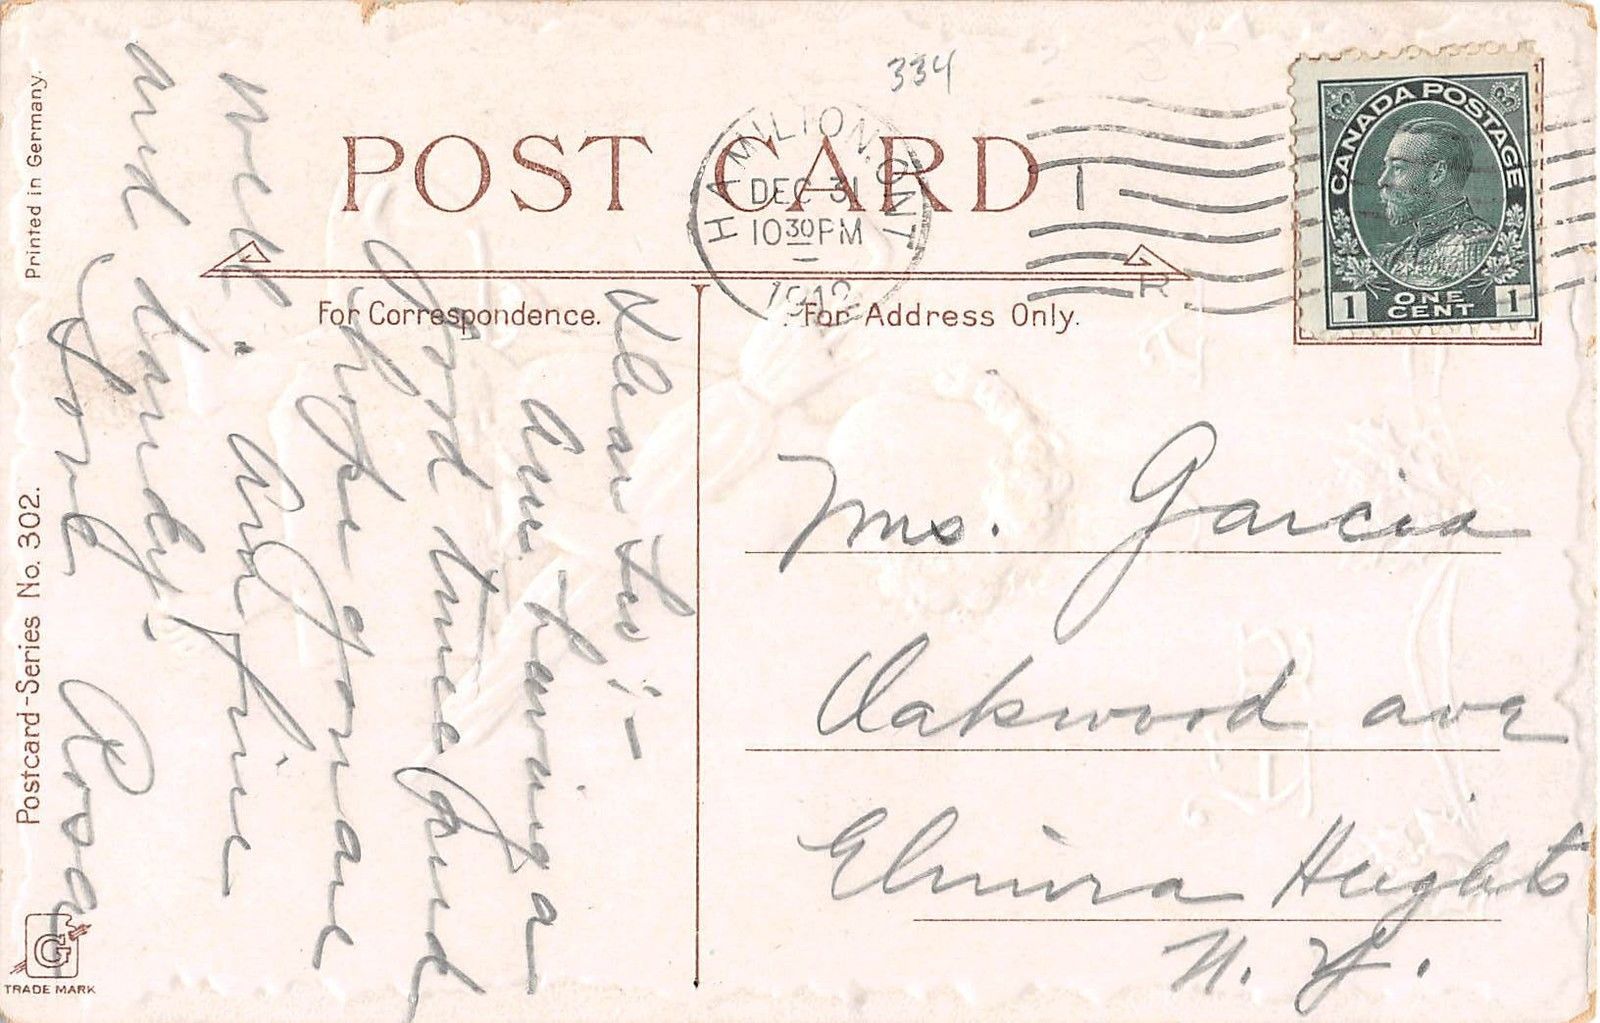 334
POST CARD
HAMILTON. ONT
DEC 31
10 30 PM
1912
CANADA POSTAGE
1 ONE CENT 1
R
For Correspondence.
For Address Only.
Dear Sis:-
Am having a
good time and
hope you are
well. Am fine
and dandy.
Love Rosa
Mrs. Garcia
Oakwood ave
Elmira Heights
N. Y.
Printed in Germany.
Postcard-Series No. 302.
G
TRADE MARK